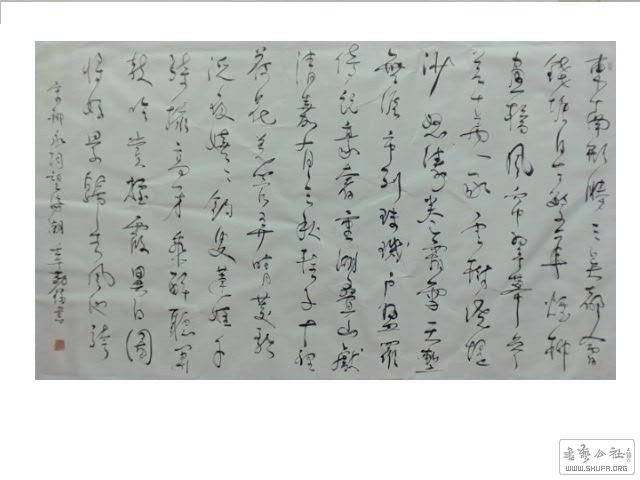 東南形勝三吳都會
錢塘自古繁華煙柳
畫橋風簾翠幕參
差十萬人家雲樹繞堤
沙怒濤卷霜雪天塹
無涯市列珠璣戶盈羅
綺競豪奢重湖疊山獻
清嘉有三秋桂子十里
荷花羌管弄晴菱歌
泛夜嬉嬉釣叟蓮娃千
騎擁高牙乘醉聽簫
鼓吟賞煙霞異日圖
將好景歸去鳳池誇
宋柳永詞望海潮 書
書藝公社
WWW.SHUFA.ORG